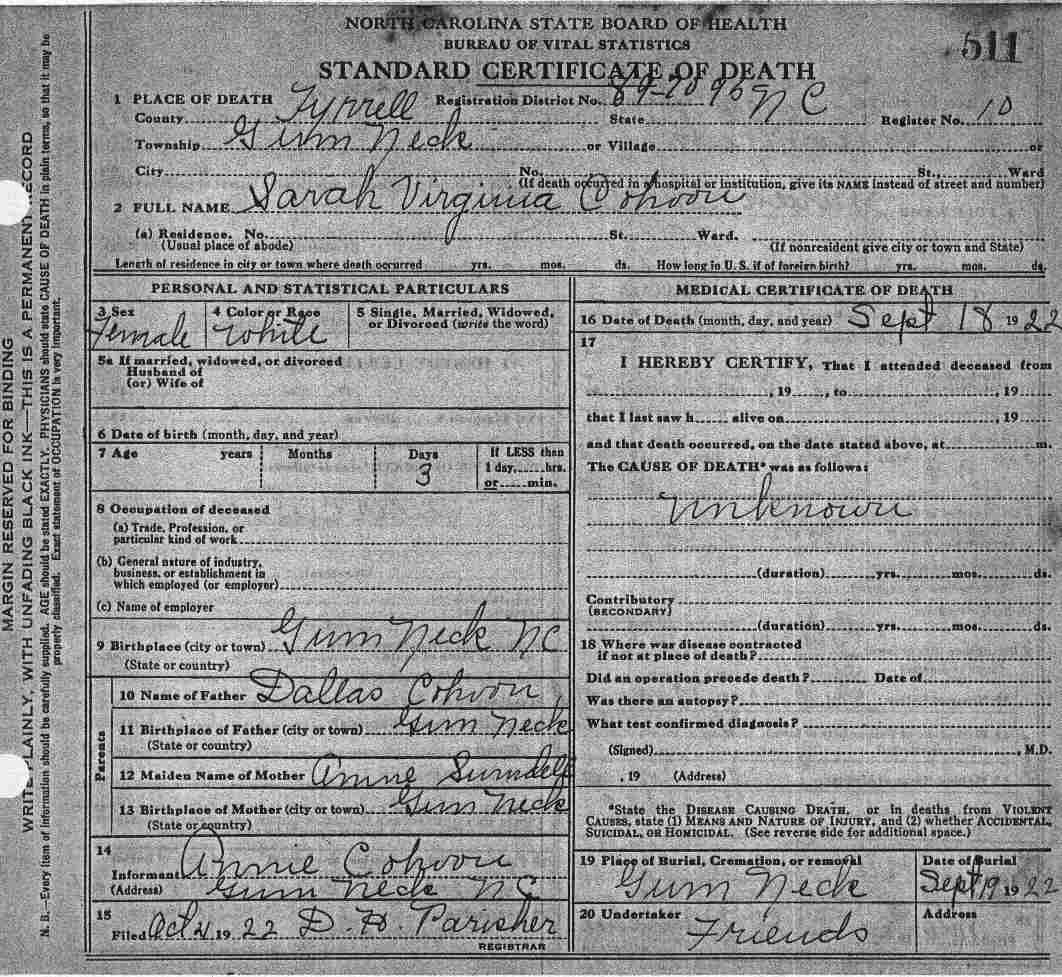 NORTH CAROLINA STATE BOARD OF HEALTH
BUREAU OF VITAL STATISTICS
511
STANDARD CERTIFICATE OF DEATH
1 PLACE OF DEATH Registration District No. 89-7096
County Tyrrell State N C Register No. 10
Township Gum Neck or Village or
City No. St., Ward
(If death occurred in a hospital or institution, give its NAME instead of street and number)
2 FULL NAME Sarah Virginia Cohoon
(a) Residence. No. St. Ward.
(Usual place of abode) (If nonresident give city or town and State)
Length of residence in city or town where death occurred yrs. mos. ds. How long in U. S. if of foreign birth? yrs. mos. ds.
PERSONAL AND STATISTICAL PARTICULARS
3 Sex 4 Color or Race 5 Single, Married, Widowed,
or Divorced (write the word)
Female White
5a If married, widowed, or divorced
Husband of
(or) Wife of
6 Date of birth (month, day, and year)
7 Age years Months Days If LESS than
1 day, hrs.
3 or min.
8 Occupation of deceased
(a) Trade, Profession, or
particular kind of work
(b) General nature of industry,
business, or establishment in
which employed (or employer)
(c) Name of employer
9 Birthplace (city or town) Gum Neck NC
(State or country)
Parents
10 Name of Father Dallas Cohoon
11 Birthplace of Father (city or town) Gum Neck
(State or country)
12 Maiden Name of Mother Annie
13 Birthplace of Mother (city or town) Gum Neck
(State or country)
14
Informant Annie Cohoon
(Address) Gum Neck NC
15
Filed Oct 19 22 D. H. Parisher
REGISTRAR
MEDICAL CERTIFICATE OF DEATH
16 Date of Death (month, day, and year) Sept 18 1922
17
I HEREBY CERTIFY, That I attended deceased from
, 19 , to , 19
that I last saw h alive on , 19
and that death occurred, on the date stated above, at m.
The CAUSE OF DEATH* was as follows:
Unknown
(duration) yrs. mos. ds.
Contributory
(SECONDARY)
(duration) yrs. mos. ds.
18 Where was disease contracted
if not at place of death?
Did an operation precede death? Date of
Was there an autopsy?
What test confirmed diagnosis?
(Signed) , M.D.
, 19 (Address)
*State the DISEASE CAUSING DEATH, or in deaths from VIOLENT
CAUSES, state (1) MEANS AND NATURE OF INJURY, and (2) whether ACCIDENTAL,
SUICIDAL, OR HOMICIDAL. (See reverse side for additional space.)
19 Place of Burial, Cremation, or removal Date of Burial
Gum Neck Sept 19 1922
20 Undertaker Address
Friends
MARGIN RESERVED FOR BINDING
WRITE PLAINLY, WITH UNFADING BLACK INK—THIS IS A PERMANENT RECORD
N. B.—Every item of information should be carefully supplied. AGE should be stated EXACTLY. PHYSICIANS should state CAUSE OF DEATH in plain terms, so that it may be
properly classified. Exact statement of OCCUPATION is very important.